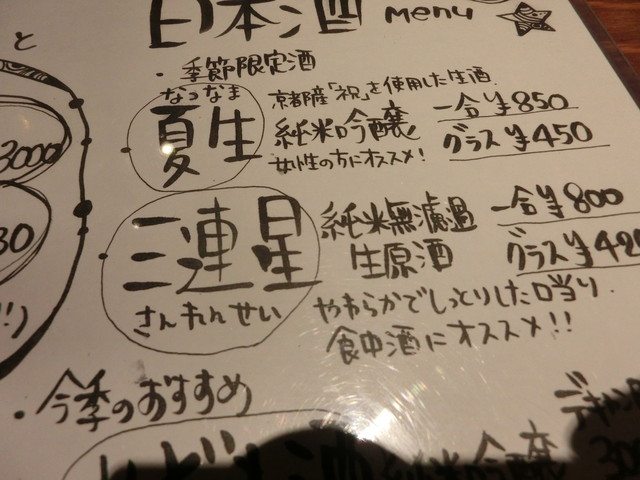 日本酒 menu
と
・季節限定酒
なつなま
夏生
京都産「祝」を使用した生酒.
純米吟醸
女性の方にオススメ!
一合¥850
グラス¥450
3000
30
!!)
三連星
さんれんせい
純米無濾過
生原酒
一合¥800
グラス¥420
やわらかでしっとりした口当り.
食中酒にオススメ!!
・今季のおすすめ
純米吟醸